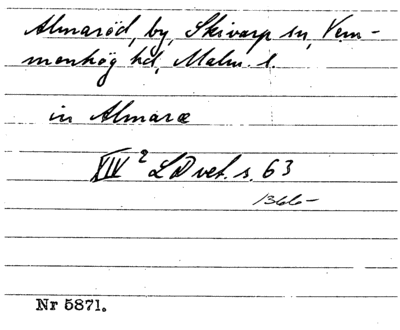 Almaröd, by, Skivarp sn, Vem-
menhög hd, Malm. l.
in Almaræ
XIV² LD vet. s. 63
1366-
Nr 5871.